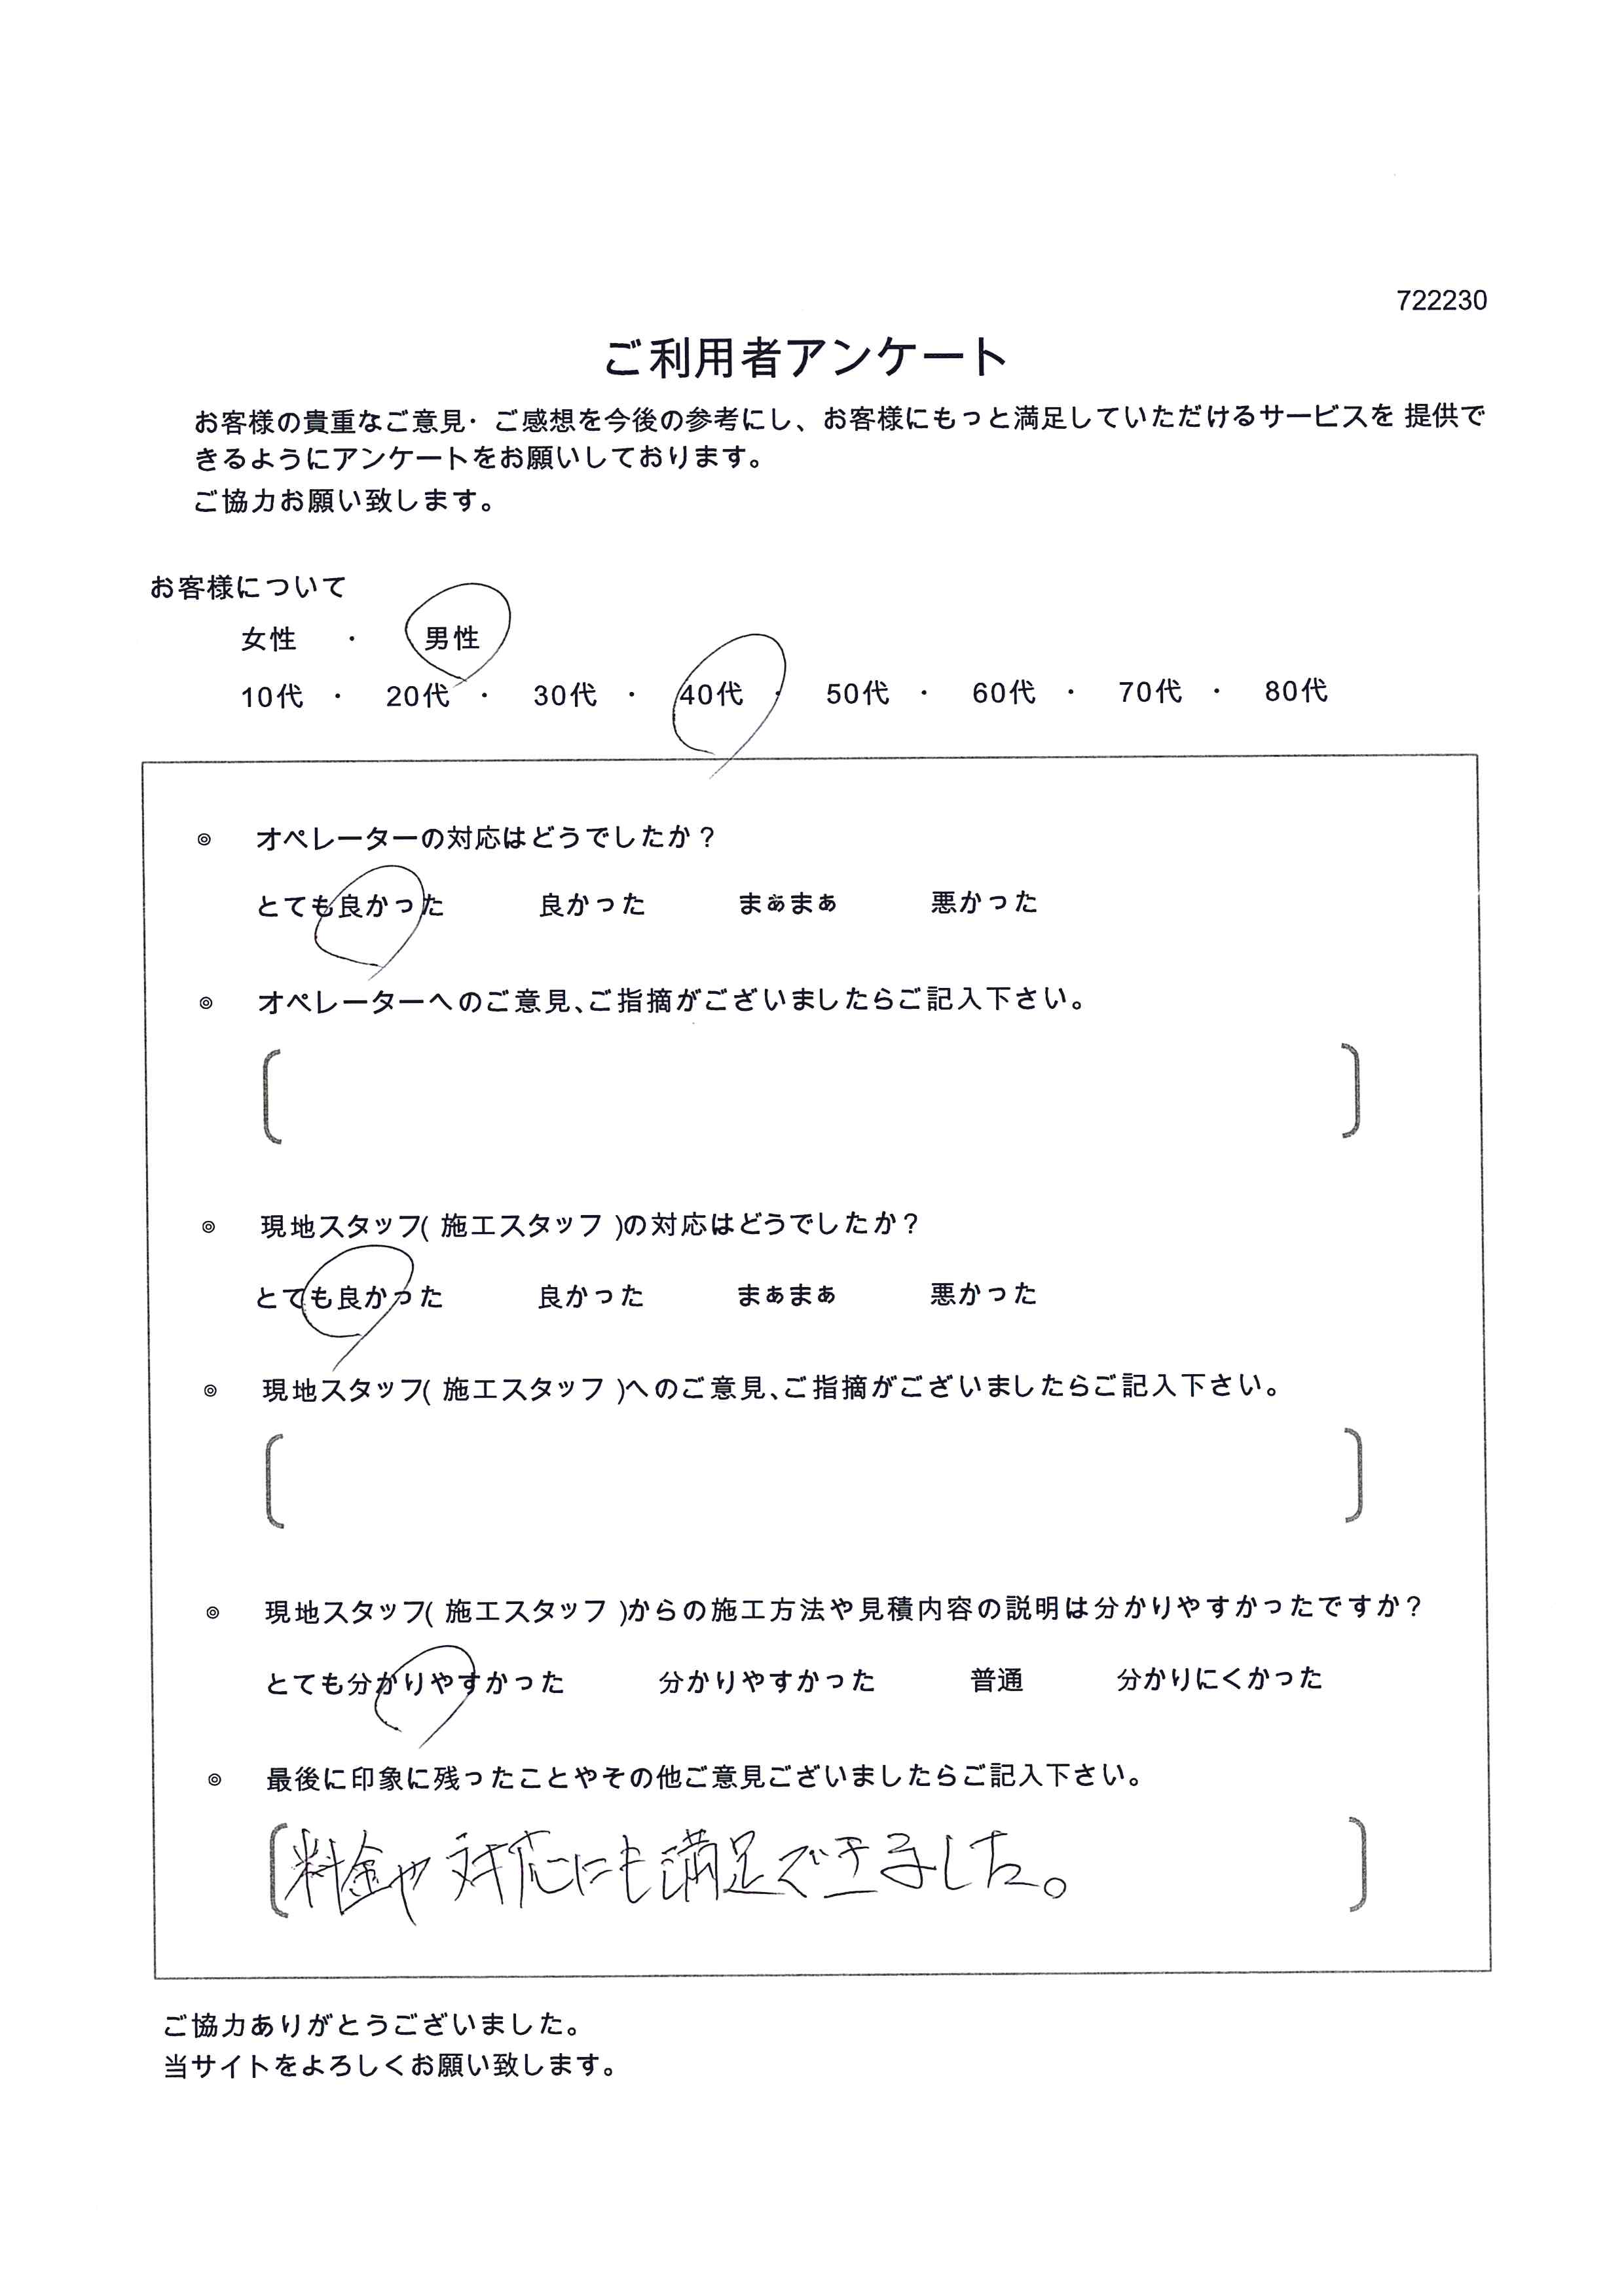 722230
ご利用者アンケート
お客様の貴重なご意見・ご感想を今後の参考にし、お客様にもっと満足していただけるサービスを 提供で
きるようにアンケートをお願いしております。
ご協力お願い致します。
お客様について
女性 ・ 男性
10代 ・ 20代 ・ 30代 ・ 40代 ・ 50代 ・ 60代 ・ 70代 ・ 80代
◎ オペレーターの対応はどうでしたか？
とても良かった 良かった まぁまぁ 悪かった
◎ オペレーターへのご意見、ご指摘がございましたらご記入下さい。
◎ 現地スタッフ( 施工スタッフ )の対応はどうでしたか？
とても良かった 良かった まぁまぁ 悪かった
◎ 現地スタッフ( 施工スタッフ )へのご意見、ご指摘がございましたらご記入下さい。
◎ 現地スタッフ( 施工スタッフ )からの施工方法や見積内容の説明は分かりやすかったですか？
とても分かりやすかった 分かりやすかった 普通 分かりにくかった
◎ 最後に印象に残ったことやその他ご意見ございましたらご記入下さい。
料金や対応にも満足できました。
ご協力ありがとうございました。
当サイトをよろしくお願い致します。